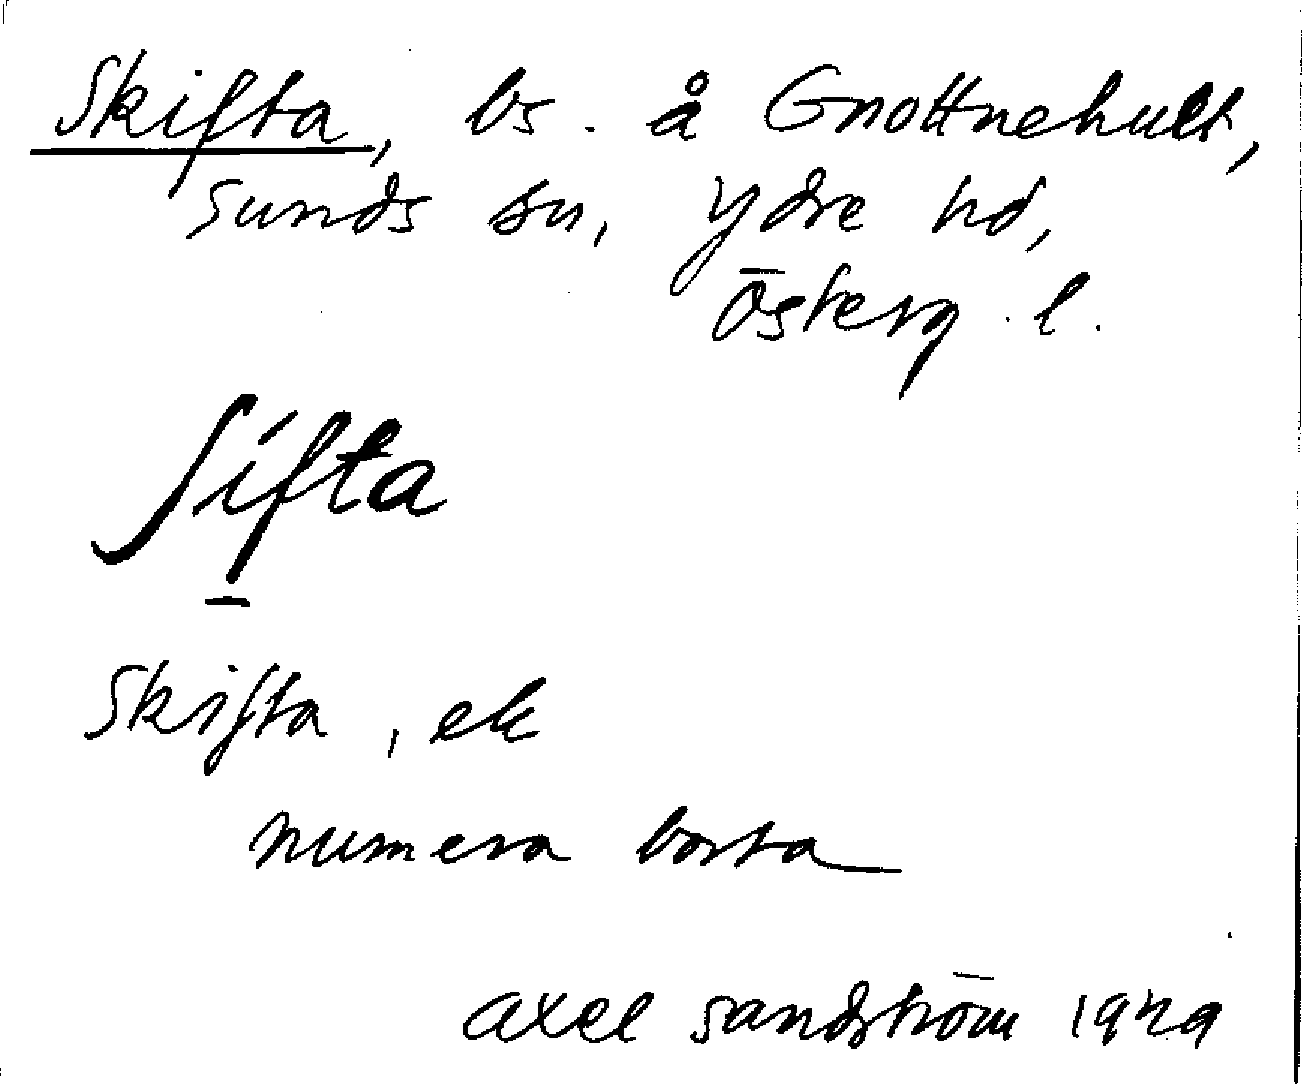 Skifta, bs. å Gnottnehult,
Sunds sn, Ydre hd,
Österg. l.
ʃifta
Skifta, ek
numera borta
Axel Sandström 1929